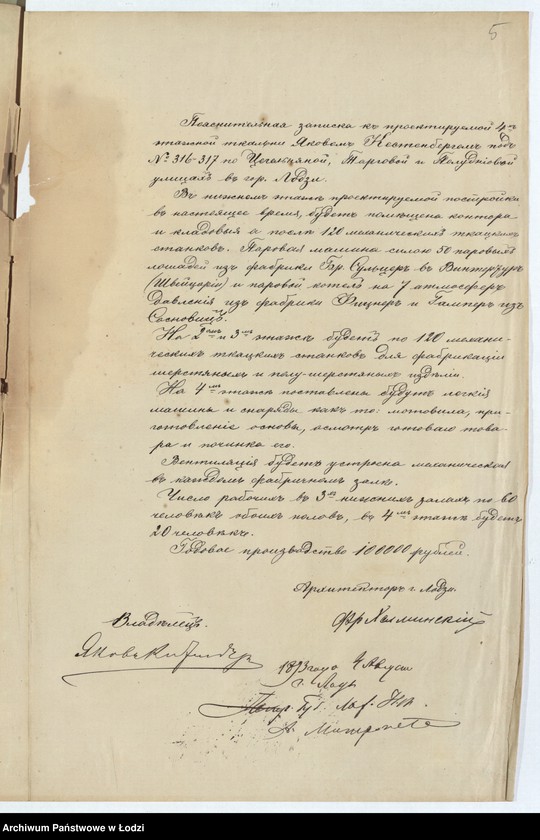 5
Пояснительная записка къ проектируемой 4хъ
этажной ткальни Яковомъ Кестенбергомъ подъ
№ 316-317 по Цегельяной, Торговой и Полудніовой
улицахъ въ гор. Лодзи.
Въ нижнемъ этажѣ проектируемой постройки
въ настоящее время, будетъ помѣщена контора
и кладовыя а послѣ 120 механическихъ ткацкихъ
станковъ. Паровая машина силою 50 паровыхъ
лошадей изъ фабрики Бр. Сульцеръ въ Винтртурѣ
(Швейцаріи) и паровой котелъ на 7 атмосферъ
давленія изъ фабрики Фицнеръ и Гамперъ изъ
Сосновицъ.
На 2омъ и 3мъ этажѣ будетъ по 120 механи-
ческихъ ткацкихъ станковъ для фабрикаціи
шерстяныхъ и полу-шерстяныхъ издѣлій.
На 4мъ этажѣ поставлены будутъ легкія
машины и снаряды какъ то: мотовила, при-
готовленіе основы, осмотръ готоваго това-
ра и починка его.
Вентиляція будетъ устроена механическая
въ каждомъ фабричномъ залѣ.
Число рабочихъ въ 3хъ нижнихъ залахъ по 60
человѣкъ обоихъ половъ, въ 4мъ этажѣ будетъ
20 человѣкъ.
Годовое производство 100000 рублей.
Архитекторъ г. Лодзи.
Владѣлецъ.
Фр Хелминскій
Яковъ
1893 года 4 Августа
г. Лодзь
А.
Archiwum Państwowe w Łodzi